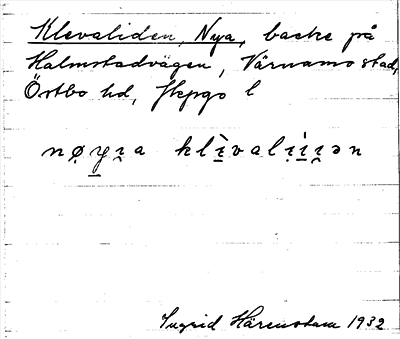 Klevaliden, Nya, backe på
Halmstadvägen, Värnamo stad,
Östbo hd, Jkpgs l
klèvalị
Ingrid Härenstam 1932